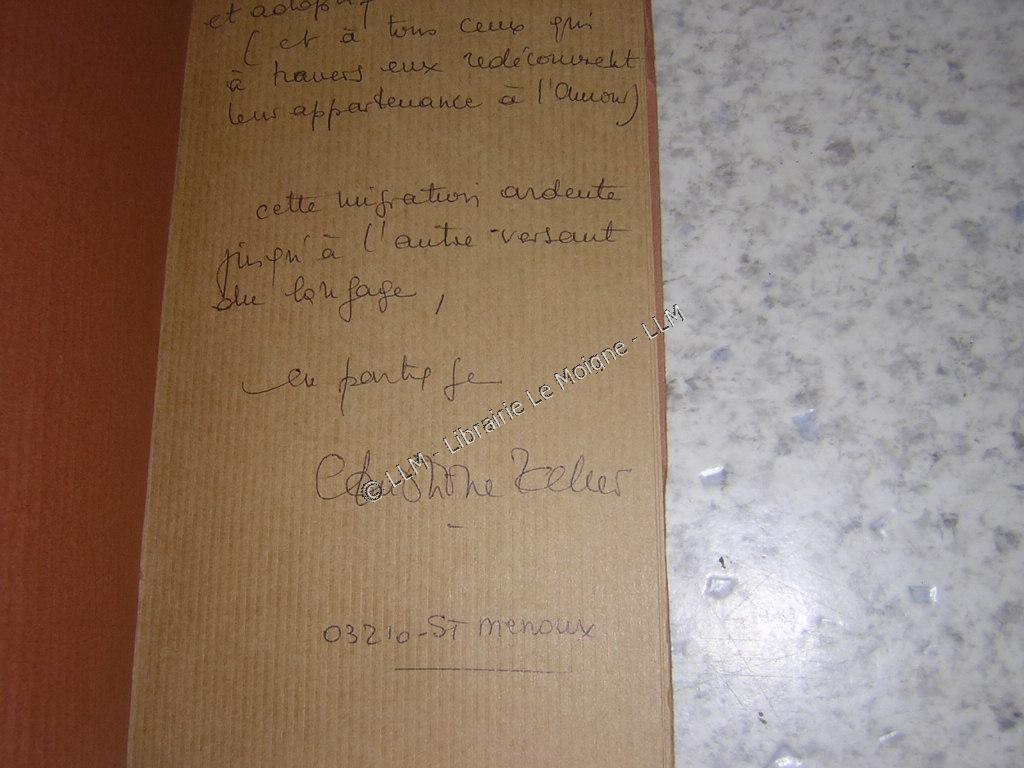 et
( et à tous ceux qui
à travers eux redécouvrent
leur appartenance à l'Amour)
cette migration ardente
jusqu'à l'autre versant
du langage,
en partage
© LLM - Librairie Le Moigne - LLM
03210 - ST Menoux